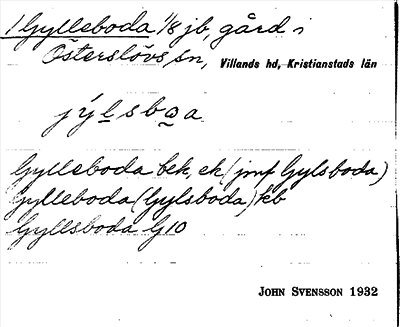 1 Gylleboda 1/8 jb, gård i
Österslövs sn, Villands hd, Kristianstads län
jýlsboa
Gylleboda bek, ek (jmf Gylsboda)
Gylleboda (Gylsboda) kb
Gyllsboda G10
JOHN SVENSSON 1932